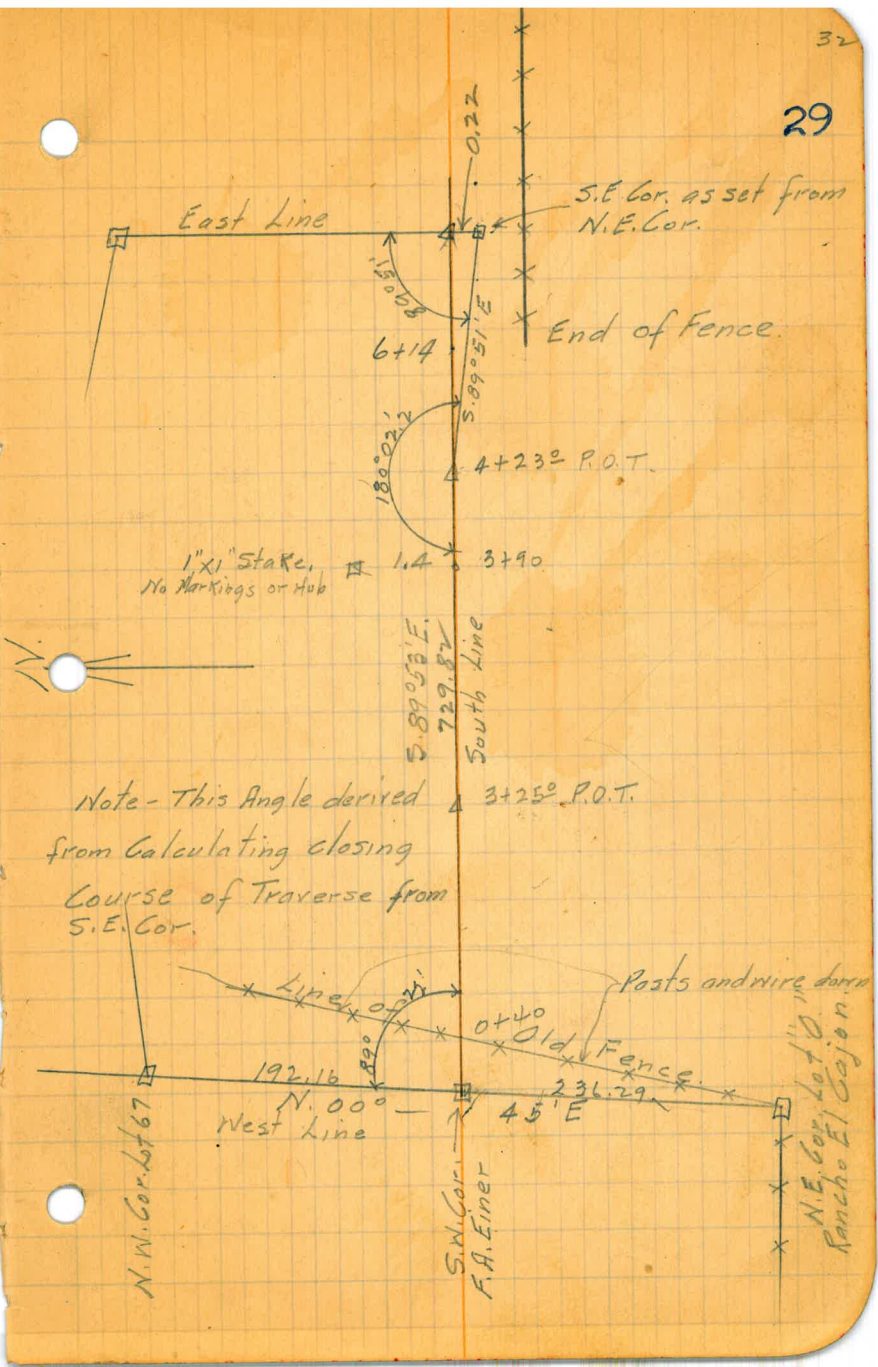 32
29
0.22
East Line
S.E Cor. as set from
N.E. Cor.
89°51'
S.89°51'E
End of Fence.
6+14
180°02.2'
4+23⁰ P.O.T.
1"x1" Stake.
No Markings or Hub
1.4
3+90
S.89°53'E.
729.82
South Line
Note - This Angle derived
from Calculating closing
Course of Traverse from
S.E. Cor.
3+25⁰ P.O.T.
Posts and wire down
Line of Old Fence.
0+40
89°
192.16
236.29
N. 00° 45'E
West Line
N.W. Cor. Lot 67
S.W. Cor.
F.A. Einer
N.E. Cor. Lot "O"
Rancho El Cajon.